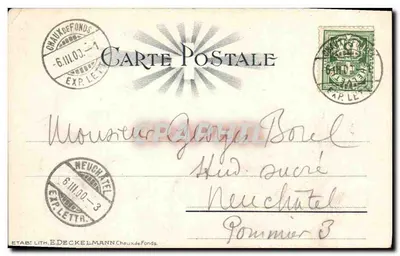 CHAUX-DE-FONDS
-6.III.00.-1
EXP. LET.
CARTE POSTALE
-6.III.00.-
EXP. LET.
Monsieur Georges Borel
sucré
Neuchâtel
Pommier 3
NEUCHATEL
-6.III.00.-3
EXP. LETTR.
ETABT LITH. E. DECKELMANN, Chx-de-Fonds.